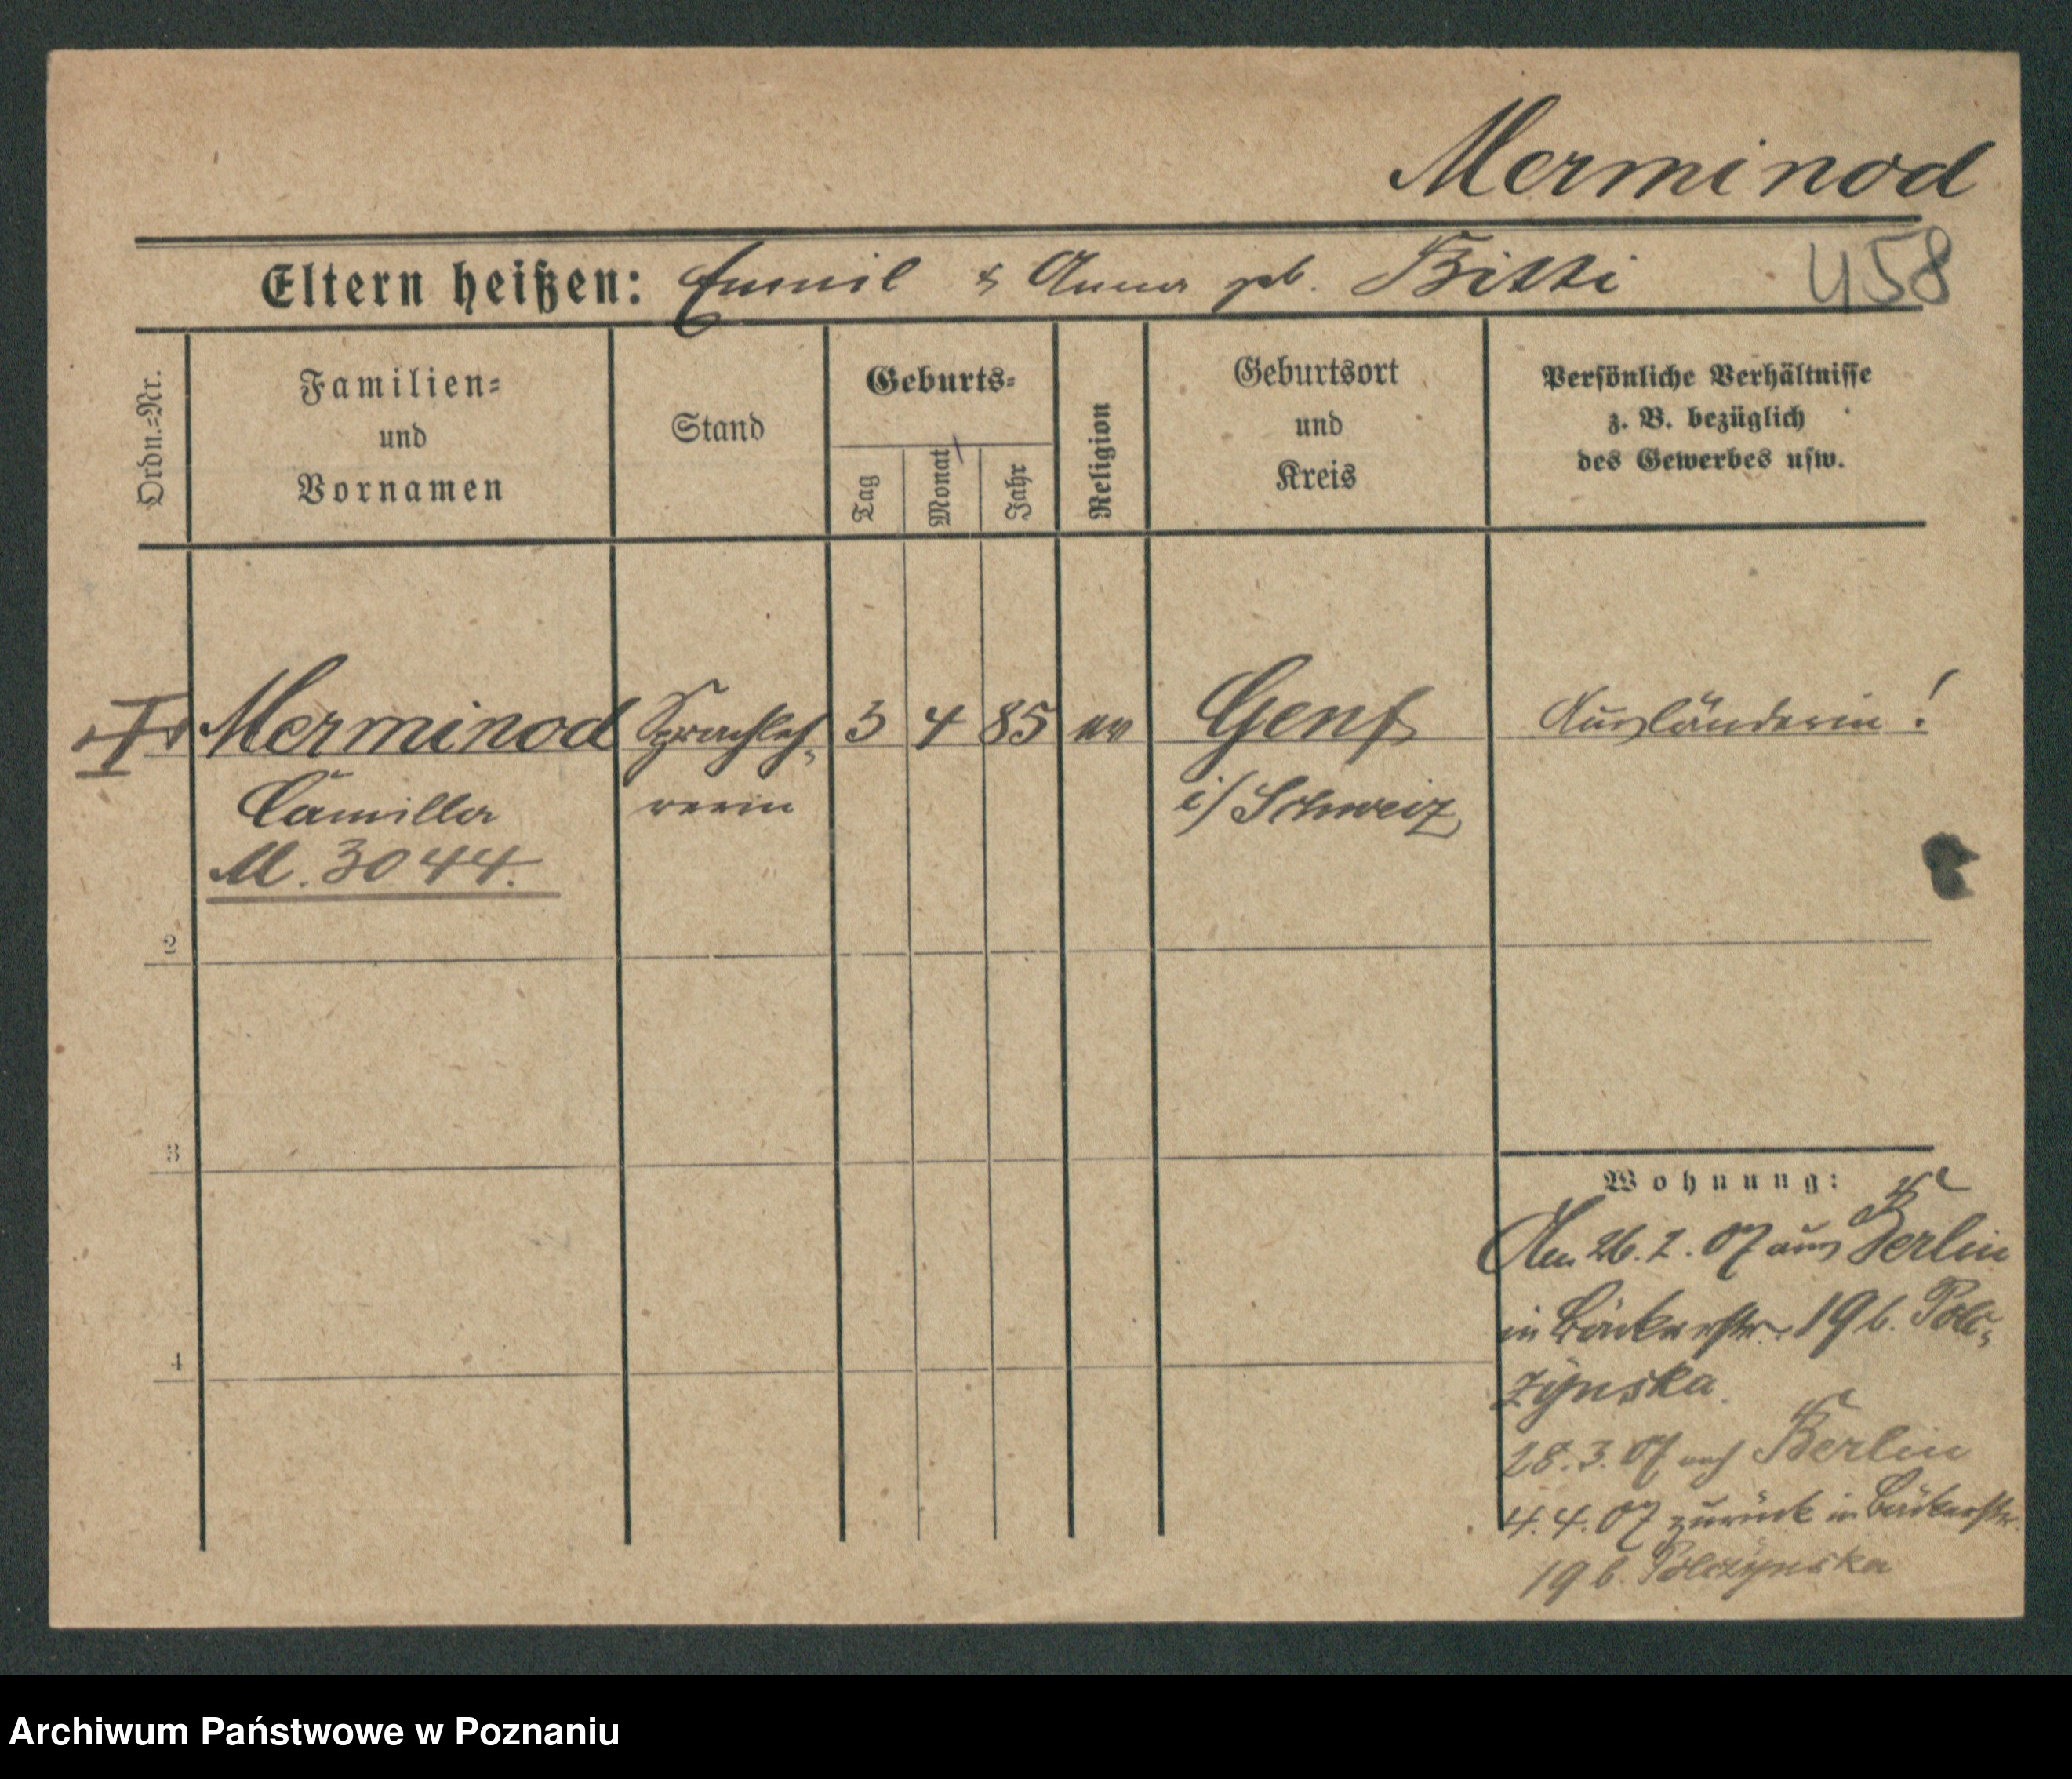 Merminod
Eltern heißen: Emil & Anna geb. Bitti 458
Ordn.-Nr.
Familien-
und
Vornamen
Stand
Geburts-
Tag
Monat
Jahr
Religion
Geburtsort
und
Kreis
Persönliche Verhältnisse
z. B. bezüglich
des Gewerbes usw.
I Merminod Sprachleh- 3 4 85 ev Genf Ausländerin!
Camilla rerin i/Schweiz
M. 3044.
2
3
4
Wohnung:
Den 26. 2. 07 aus Berlin
in Bäckerstr. 19 b. Polc-
zynska.
28. 3. 07 nach Berlin
4. 4. 07 zurück in Bäckerstr.
19 b. Polczynska
Archiwum Państwowe w Poznaniu